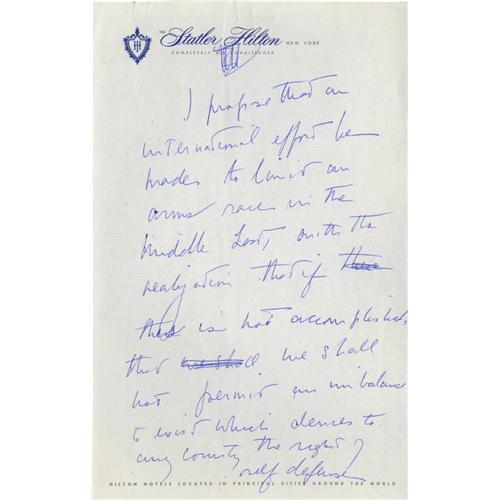 THE Statler Hilton NEW YORK
COMPLETELY AIR CONDITIONED
I propose that an
international effort be
made to limit an
arms race in the
Middle East, with the
realization that if there
this is not accomplished,
that we shall
not permit an imbalance
to exist which denies to
any country the right of
self defense
HILTON HOTELS LOCATED IN PRINCIPAL CITIES AROUND THE WORLD